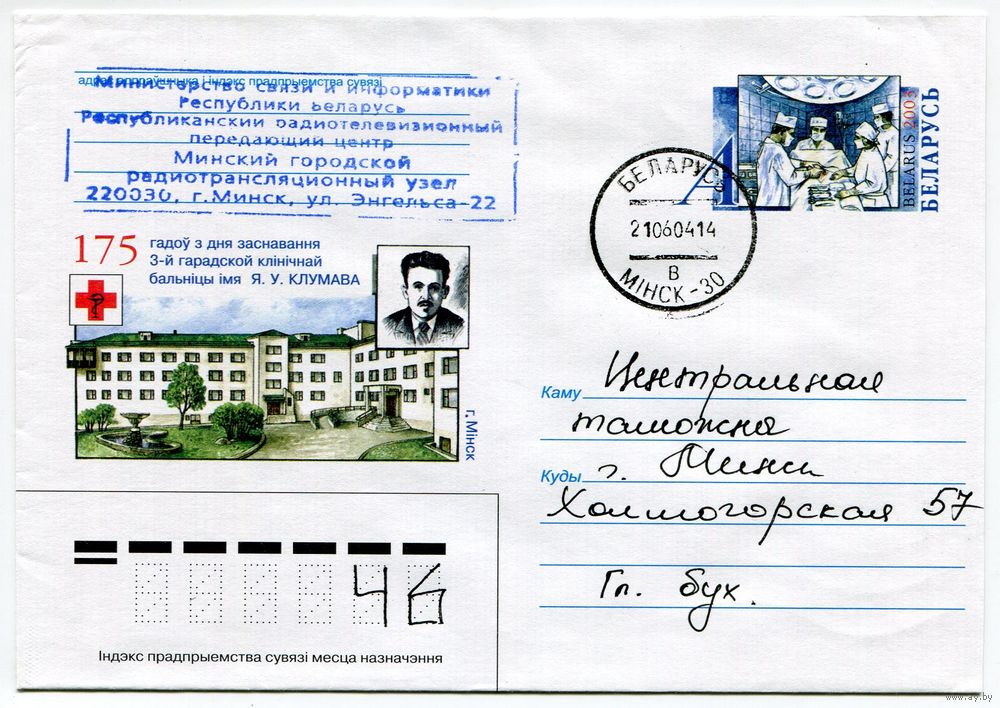 адрас адпраўшчыка і індэкс прадпрыемства сувязі
Министерство связи и информатики
Республики Беларусь
Республиканский радиотелевизионный
передающий центр
Минский городской
радиотрансляционный узел
220030, г.Минск, ул. Энгельса-22
175 гадоў з дня заснавання
3-й гарадской клінічнай
бальніцы імя Я. У. КЛУМАВА
г. Мінск
А
BELARUS 2003
БЕЛАРУСЬ
БЕЛАРУСЬ
21060414
В
МІНСК-30
Каму Центральная
таможня
Куды г. Минск
Холмогорская 57
Гл. бух.
46
Індэкс прадпрыемства сувязі месца назначэння
www.ay.by